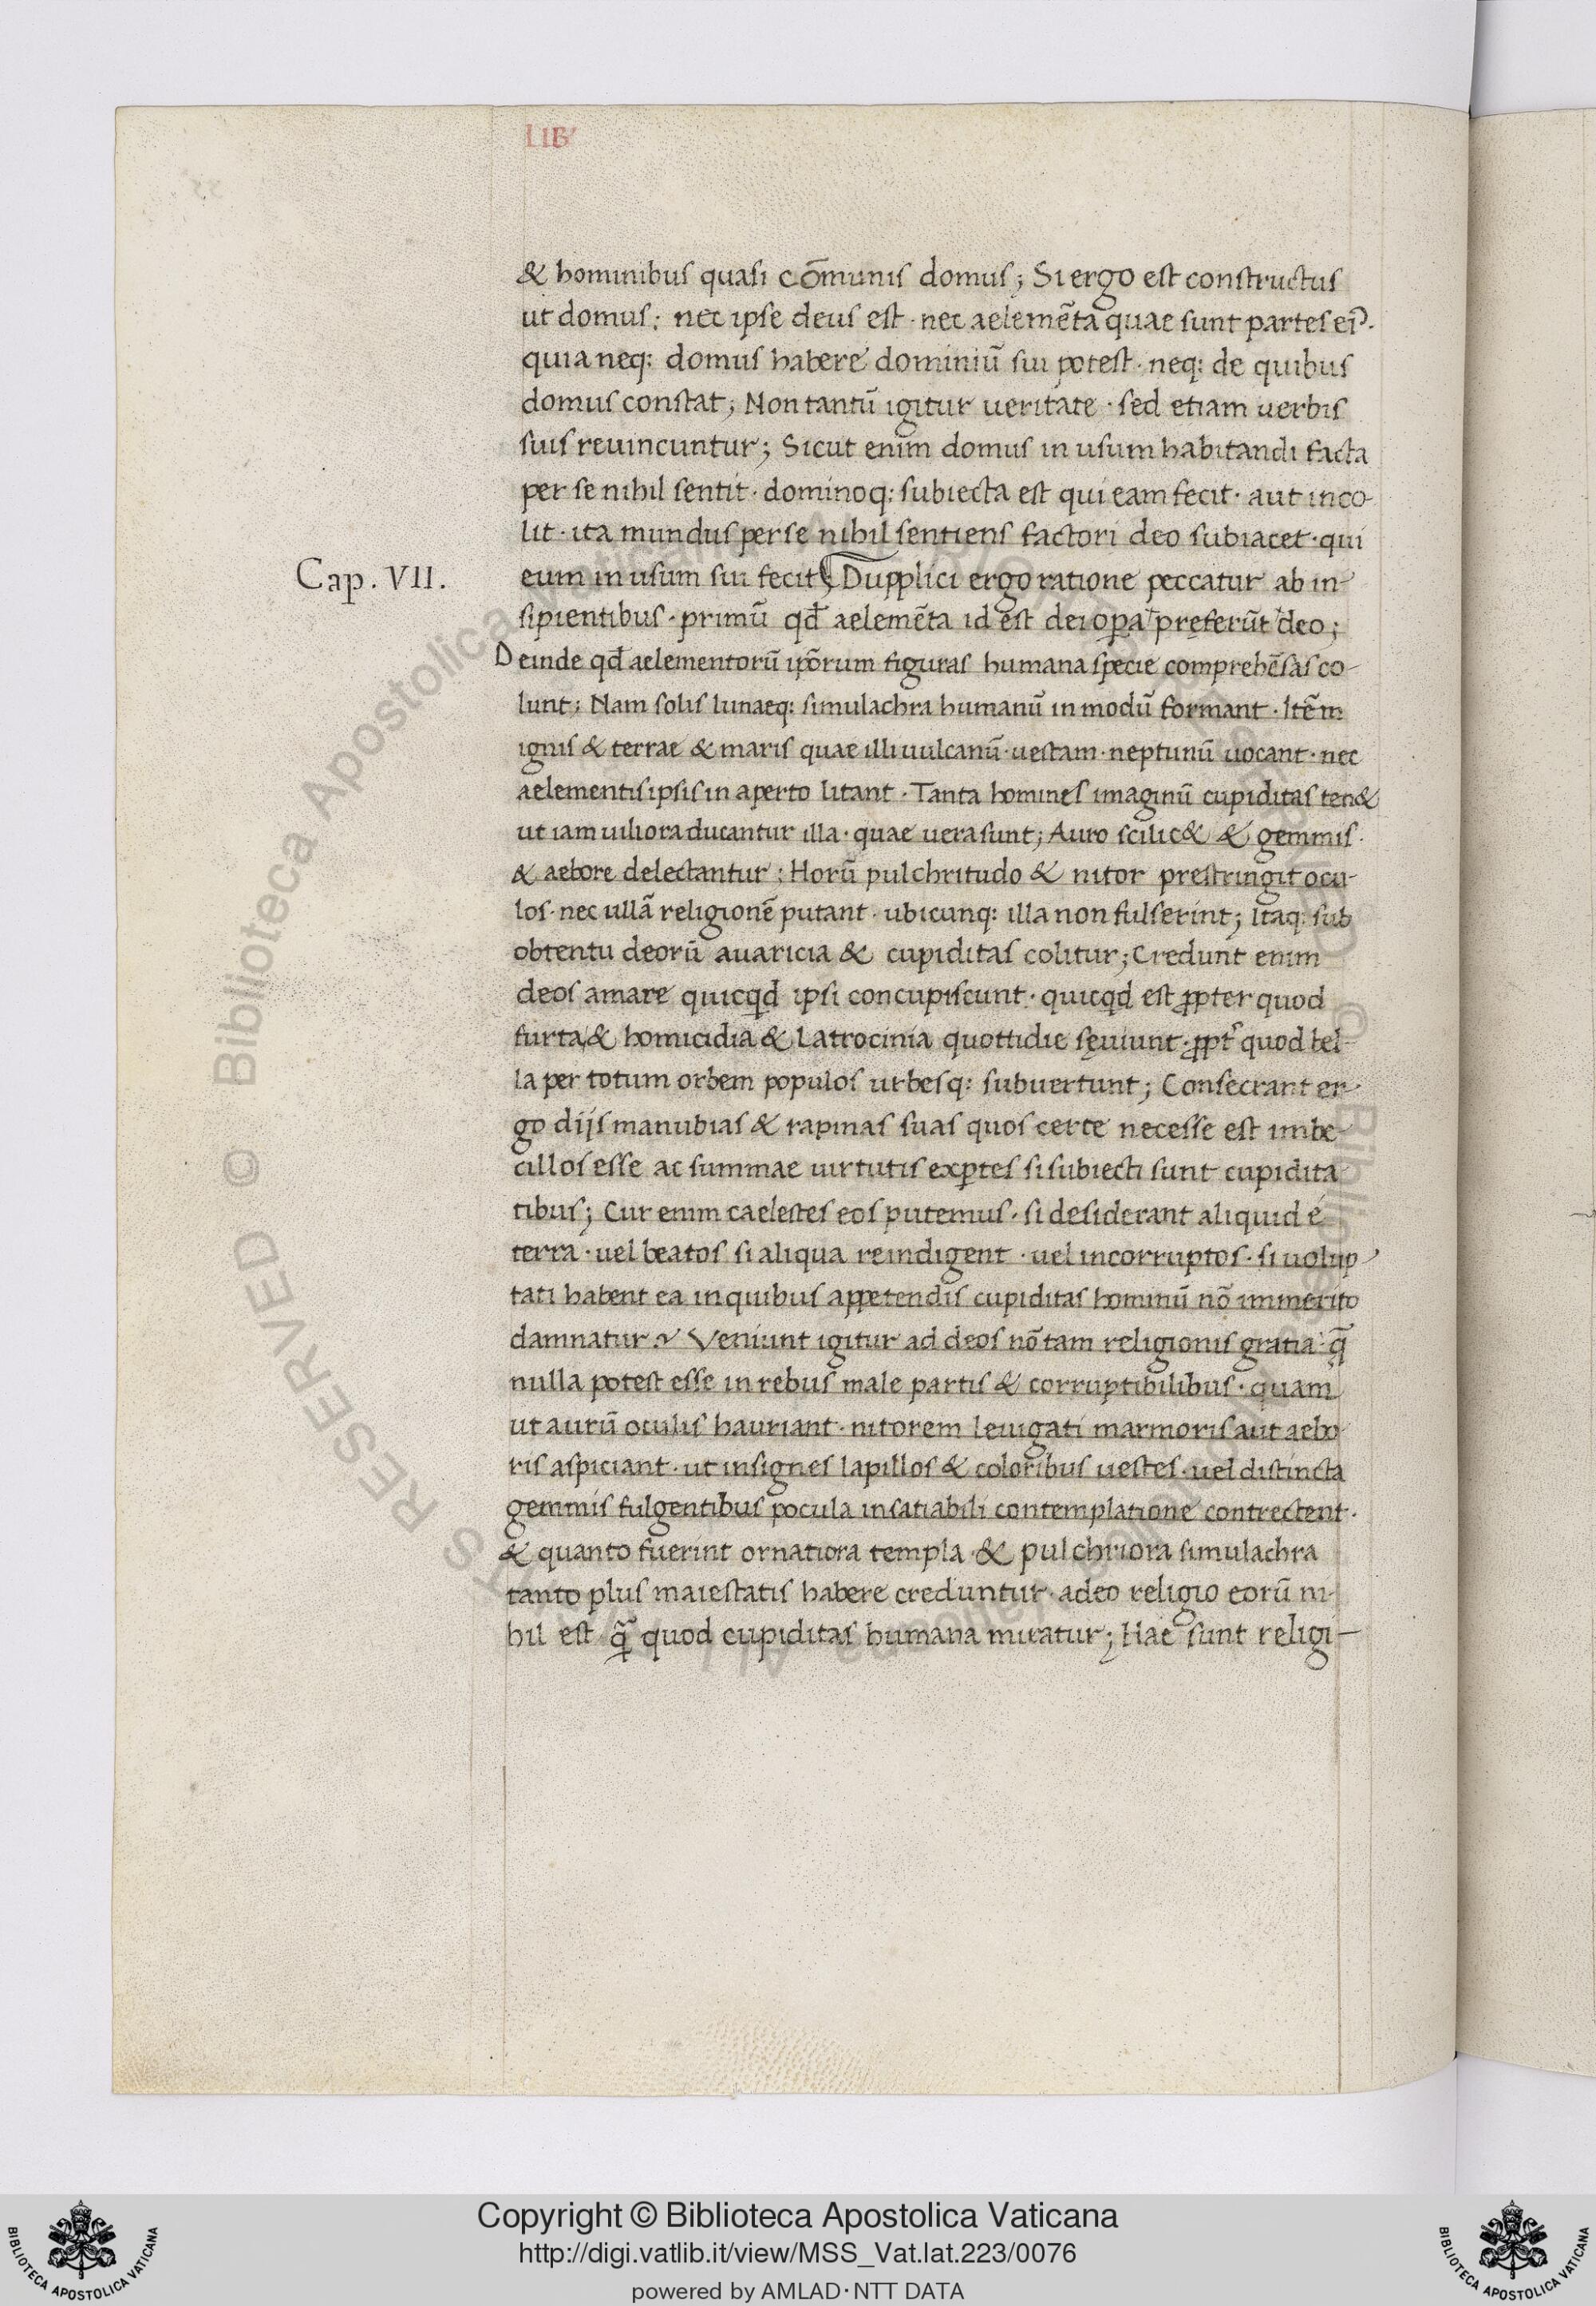 LIB
& hominibus quasi cōmunis domus; Si ergo est constructus
ut domus: nec ipse deus est · nec aelemēta quae sunt partes eiꝰ·
quia neq: domus habere dominiū sui potest · neq: de quibus
domus constat; Non tantū igitur ueritate · sed etiam uerbis
suis reuincuntur; Sicut enim domus in usum habitandi facta
per se nihil sentit · dominoq: subiecta est qui eam fecit · aut inco-
lit · ita mundus per se nihil sentiens factori deo subiacet · qui
Cap. VII.
eum in usum sui fecit; Dupplici ergo ratione peccatur ab in-
sipientibus · primū qđ aelemēta id est dei opa preferūt deo;
Deinde qđ aelementorū ipōrum figuras humana specie comprehēsas co-
lunt: Nam solis lunaeq: simulachra humanū in modū formant · Itēm
ignis & terrae & maris quae illi uulcanū · uestam · neptunū uocant · nec
aelementis ipsis in aperto litant · Tanta homines imaginū cupiditas ten&
ut iam uiliora ducantur illa · quae uera sunt; Auro scilic& & gemmis ·
& aebore delectantur: Horū pulchritudo & nitor prestringit ocu-
los · nec ullā religionē putant · ubicunq: illa non fulserint; Itaq: sub
obtentu deorū auaricia & cupiditas colitur; Credunt enim
deos amare quicqđ ipsi concupiscunt · quicqđ est ꝓpter quod
furta & homicidia & Latrocinia quottidie sęuiunt · ꝓpt̄ quod bel-
la per totum orbem populos urbesq: subuertunt; Consecrant er-
go dijs manubias & rapinas suas quos certe necesse est imbe-
cillos esse ac summae uirtutis exꝑtes si subiecti sunt cupidita
tibus; Cur enim caelestes eos putemus · si desiderant aliquid é
terra · uel beatos si aliqua re indigent · uel incorruptos · si uolup-
tati habent ea in quibus appetendis cupiditas hominū nō immerito
damnatur? Veniunt igitur ad deos nō tam religionis gratia · q̄
nulla potest esse in rebus male partis & corruptibilibus · quam
ut aurū oculis hauriant · nitorem leuigati marmoris aut aebo-
ris aspiciant · ut insignes lapillos & coloribus uestes · uel distincta
gemmis fulgentibus pocula insatiabili contemplatione contrectent ·
& quanto fuerint ornatiora templa & pulchriora simulachra
tanto plus maiestatis habere creduntur · adeo religio eorū ni-
hil est q̄ quod cupiditas humana miratur; Hae sunt religi-
Copyright © Biblioteca Apostolica Vaticana
http://digi.vatlib.it/view/MSS_Vat.lat.223/0076
powered by AMLAD·NTT DATA
BIBLIOTECA APOSTOLICA VATICANA
BIBLIOTECA APOSTOLICA VATICANA